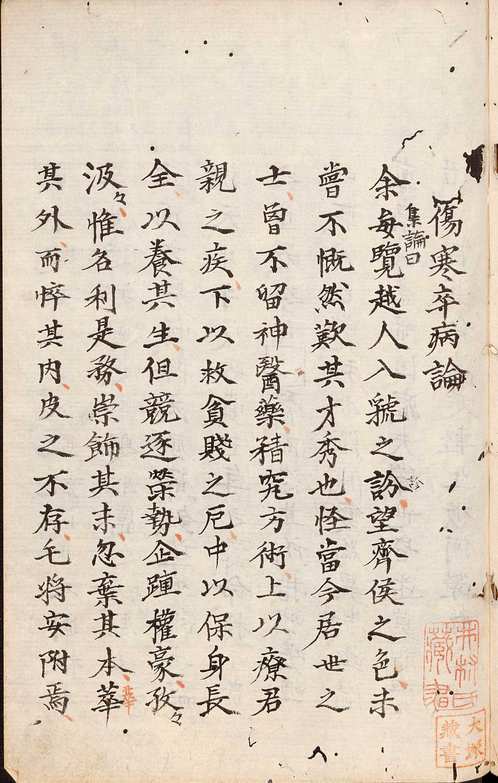 傷寒卒病論
集論曰
余每覽越人入虢之診望齊侯之色未
診
嘗不慨然歎其才秀也怪當今居世之
士曾不留神醫藥精究方術上以療君
親之疾下以救貧賤之厄中以保身長
全以養其生但競逐榮勢企踵權豪孜々
汲々惟名利是務崇飾其末忽棄其本華
華
其外而悴其内皮之不存毛將安附焉
大塚
藏書